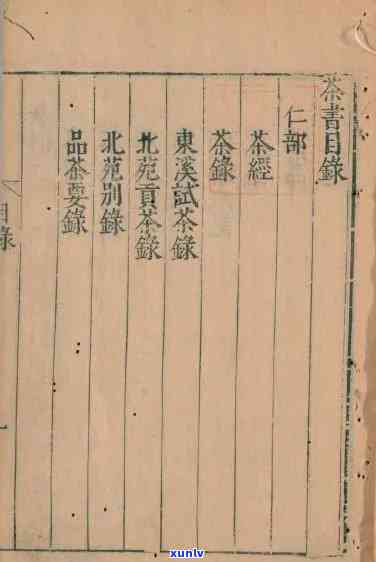 茶書目錄
仁部
茶經
茶錄
東溪試茶錄
北苑貢茶錄
北苑別錄
品茶要錄
目錄
一
xunlv